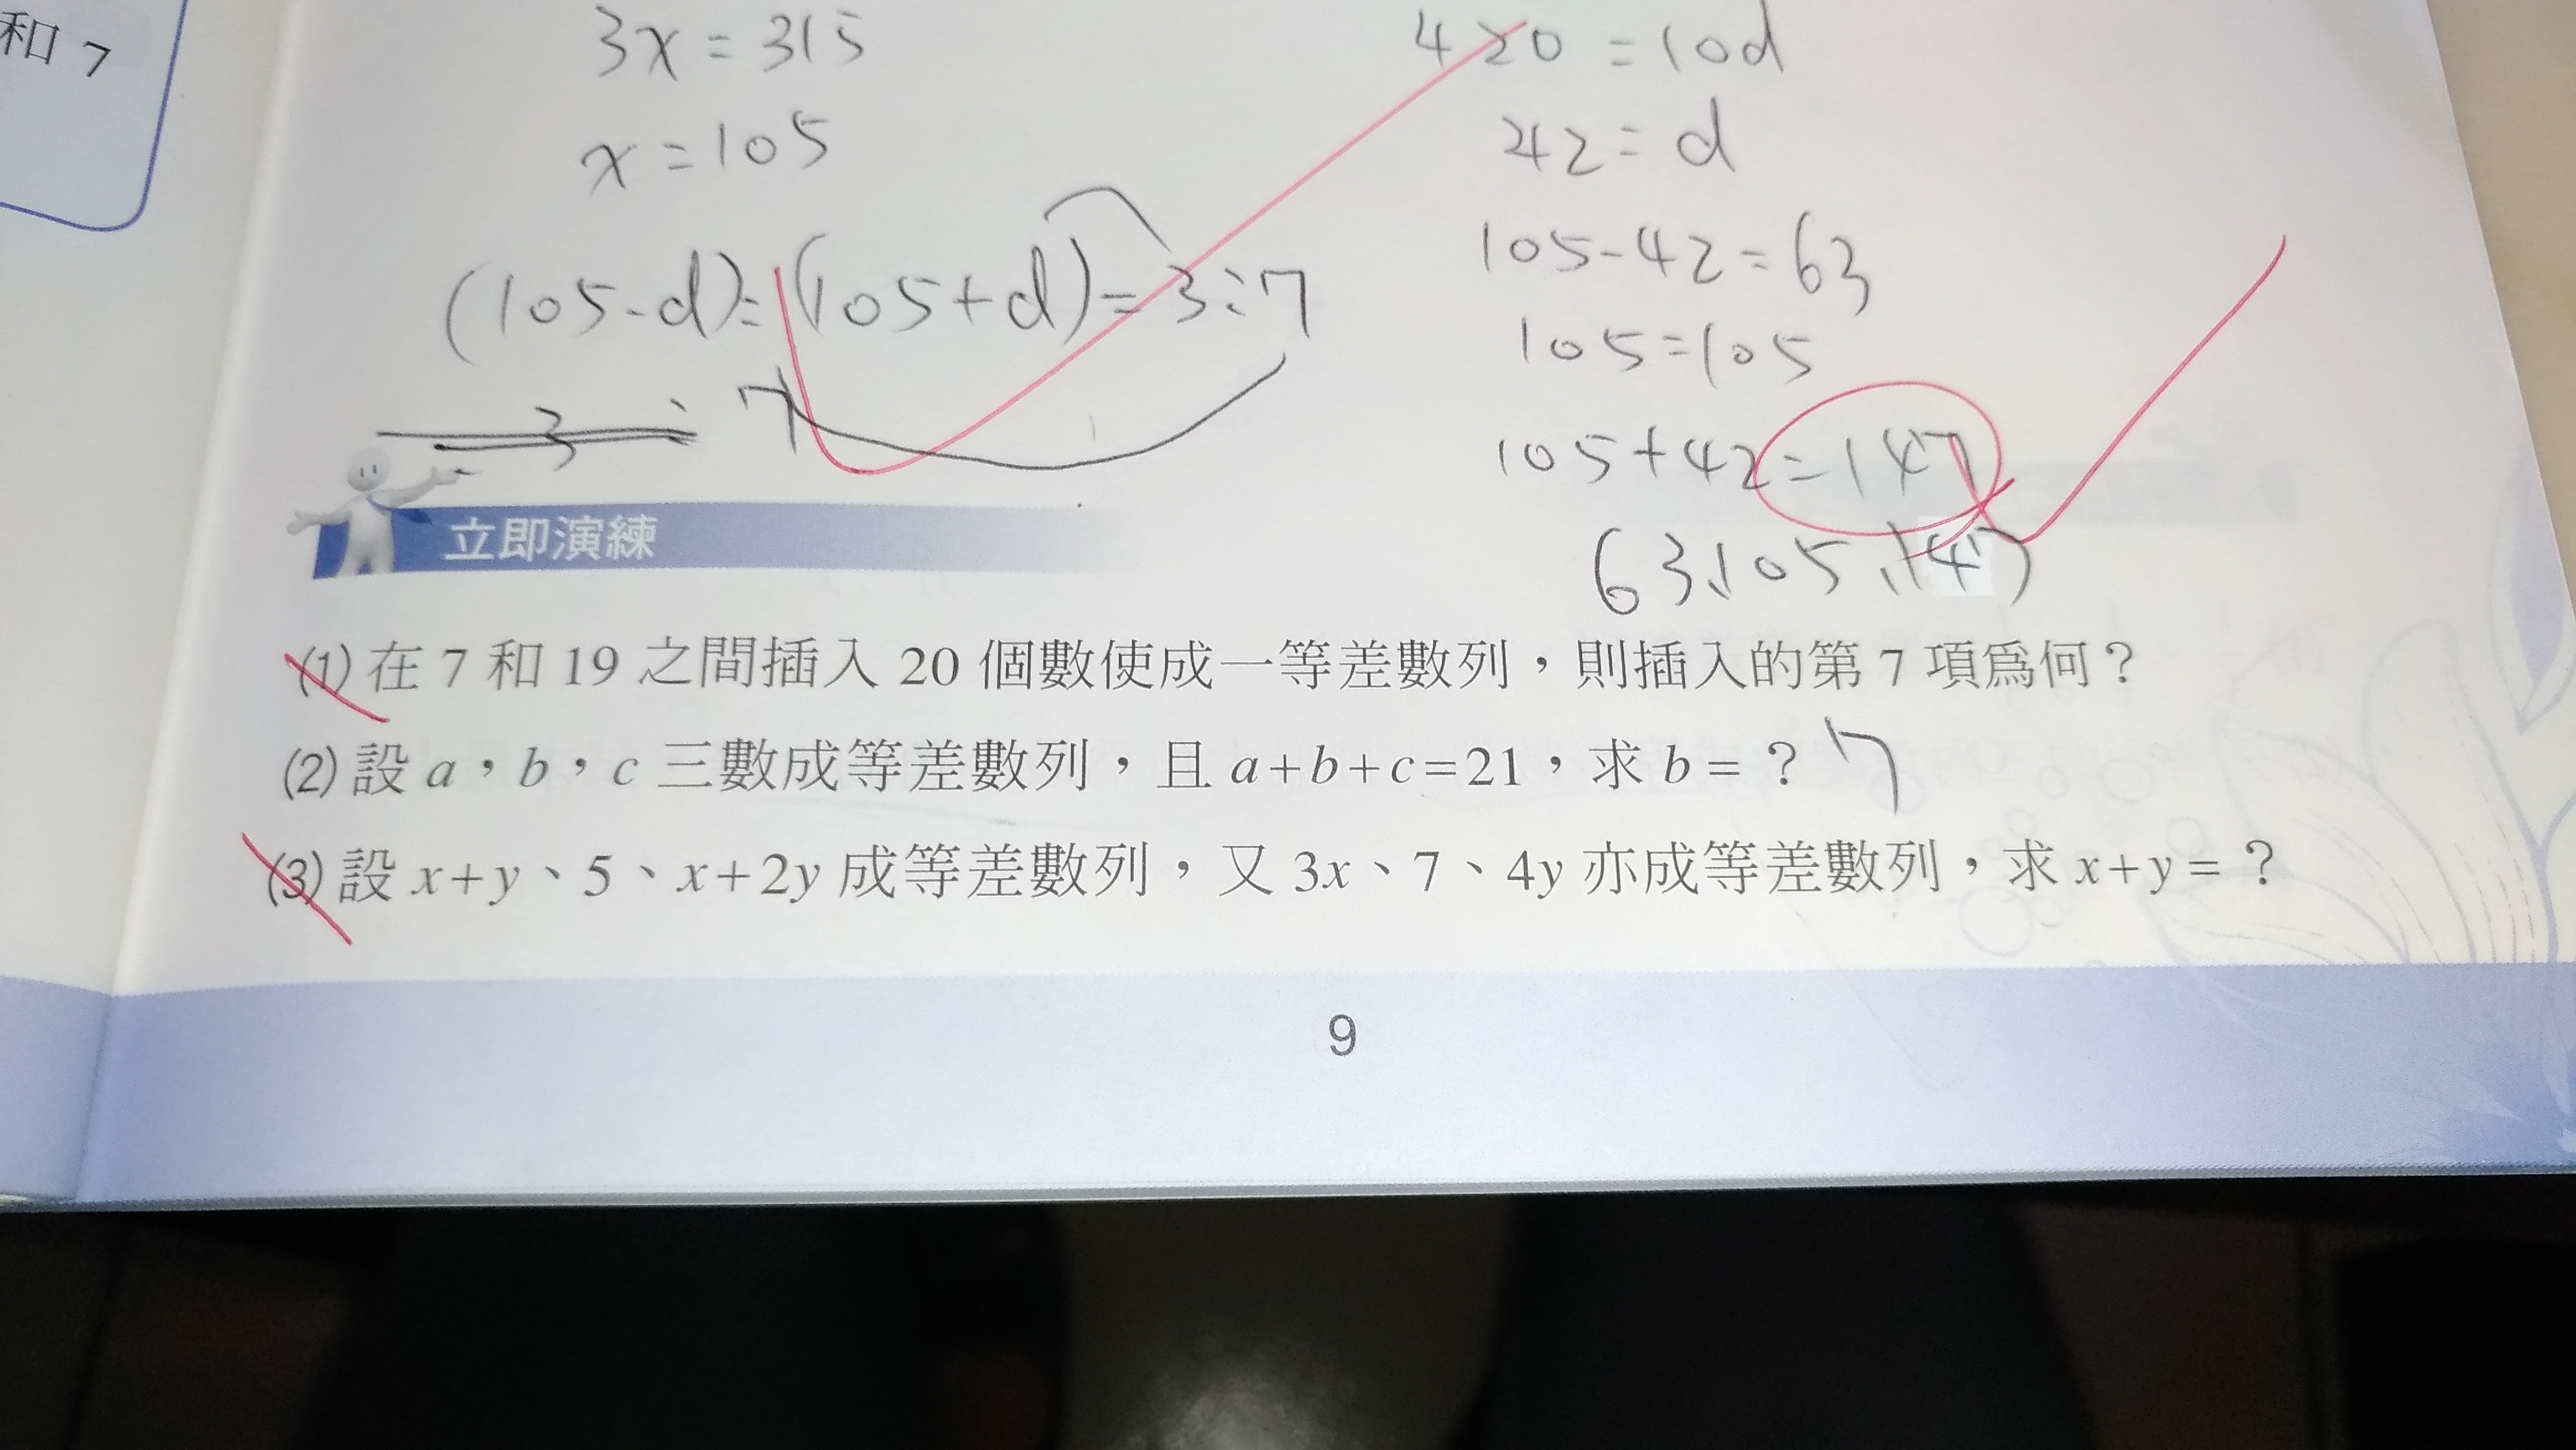 和 7
3x = 315
x = 105
(105-d):(105+d)=3:7
3 : 7
420 = 10d
42 = d
105-42=63
105=105
105+42=147
63、105、147
立即演練
(1) 在 7 和 19 之間插入 20 個數使成一等差數列，則插入的第 7 項爲何？
(2) 設 a，b，c 三數成等差數列，且 a+b+c=21，求 b=？ 7
(3) 設 x+y、5、x+2y 成等差數列，又 3x、7、4y 亦成等差數列，求 x+y=？
9